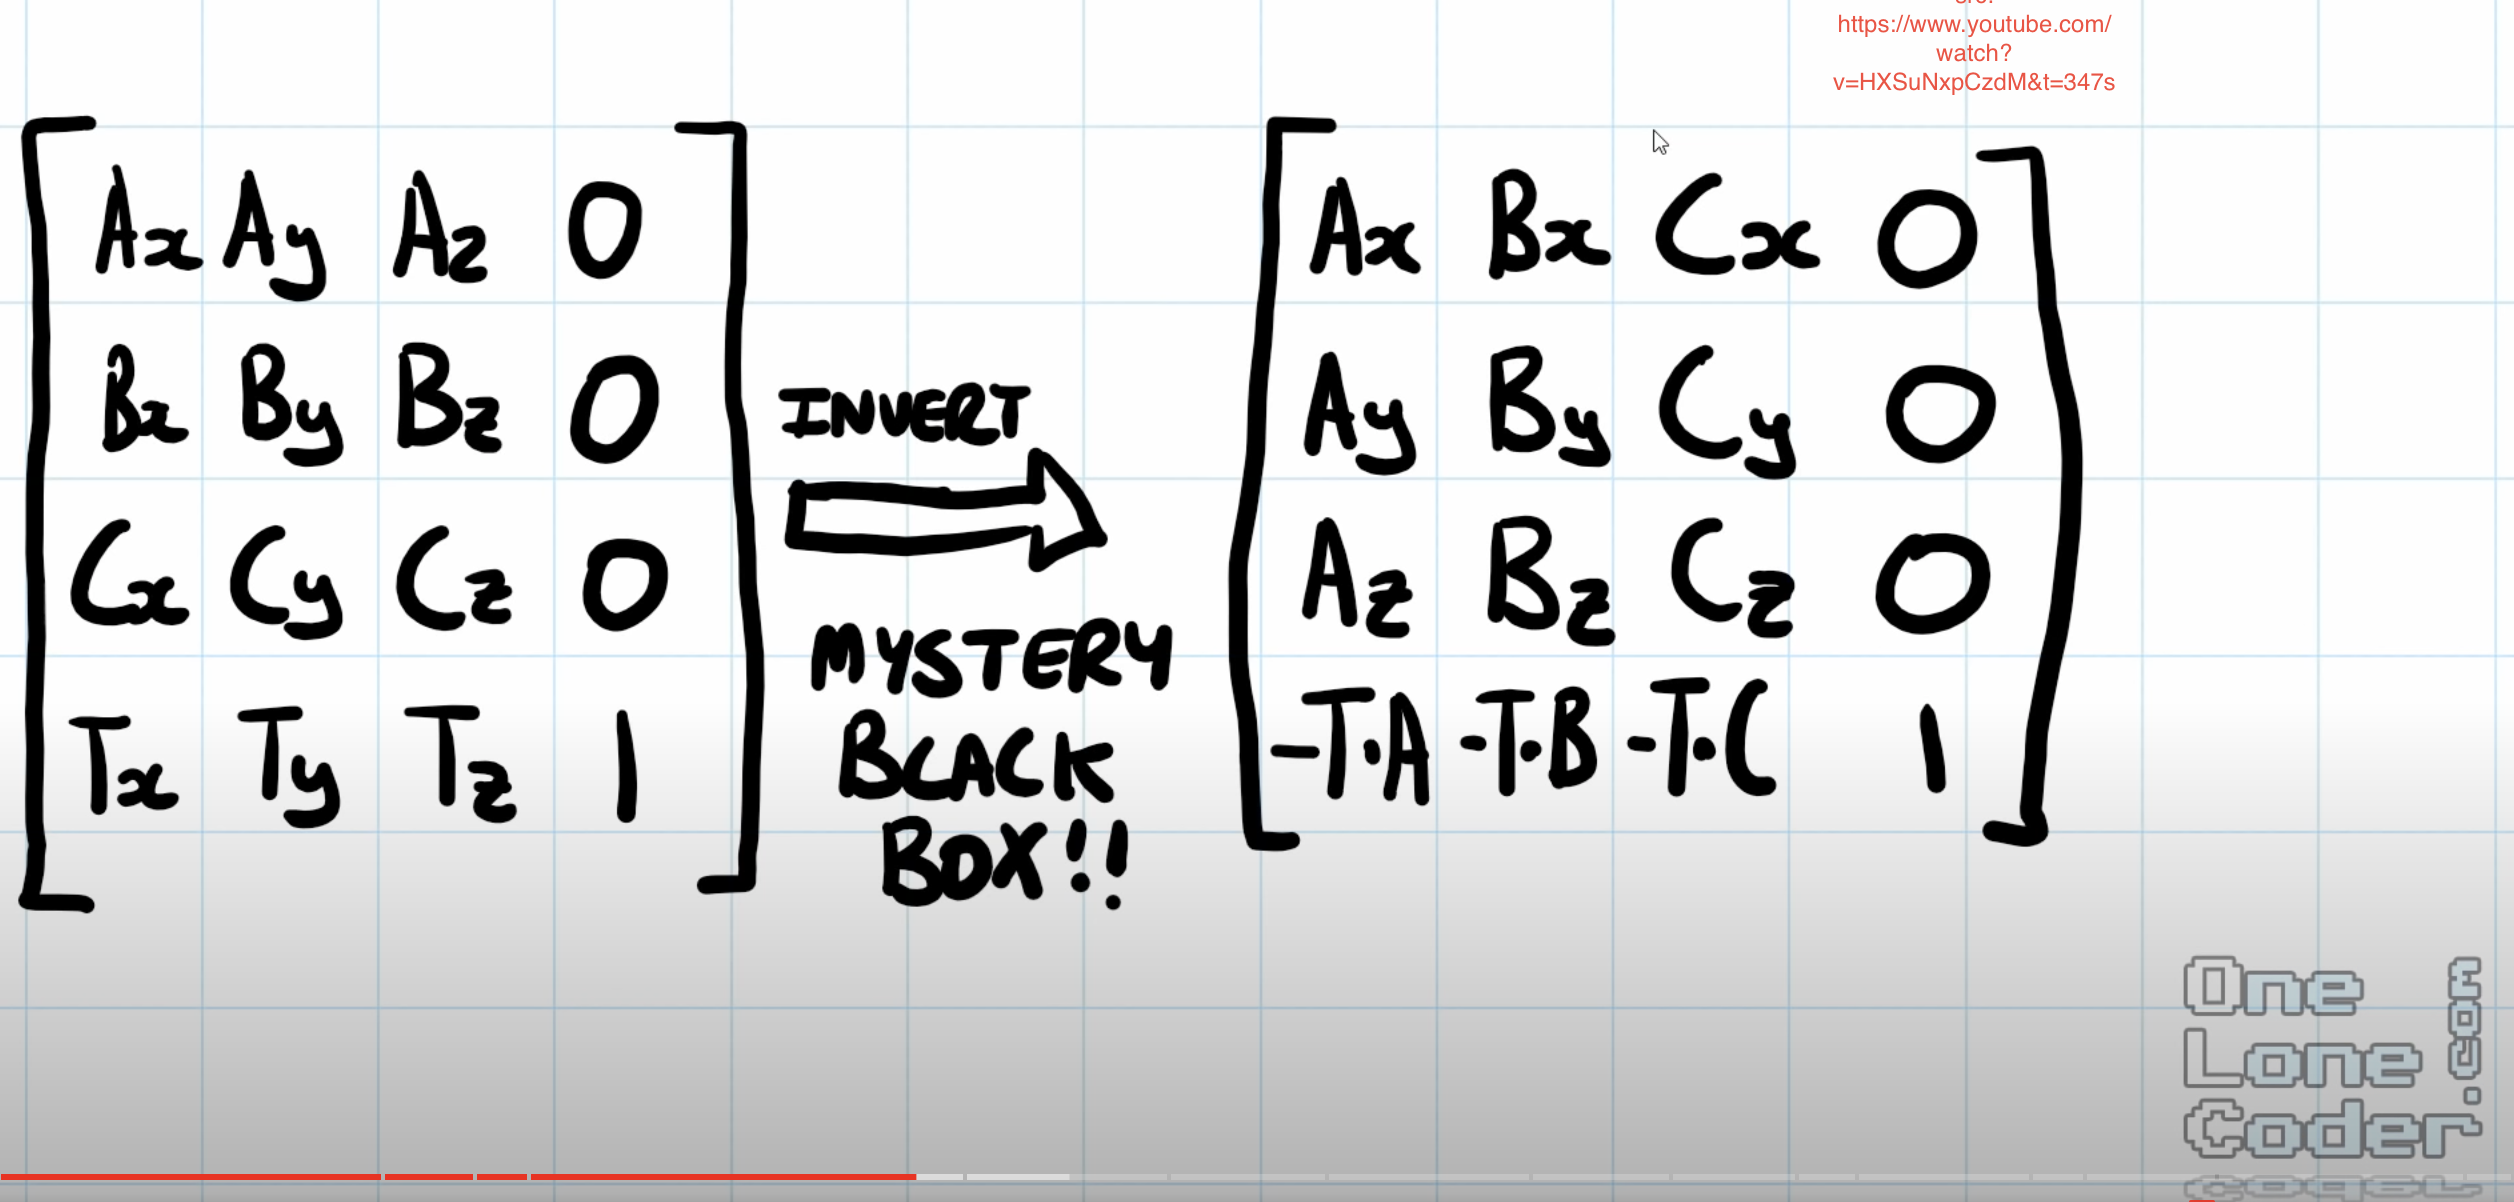 https://www.youtube.com/
watch?
v=HXSuNxpCzdM&t=347s
Ax Ay Az 0
Bx By Bz 0
Cx Cy Cz 0
Tx Ty Tz 1
INVERT
MYSTERY
BLACK
BOX!!
Ax Bx Cx 0
Ay By Cy 0
Az Bz Cz 0
-T·A -T·B -T·C 1
One
Lone
Coder
.com